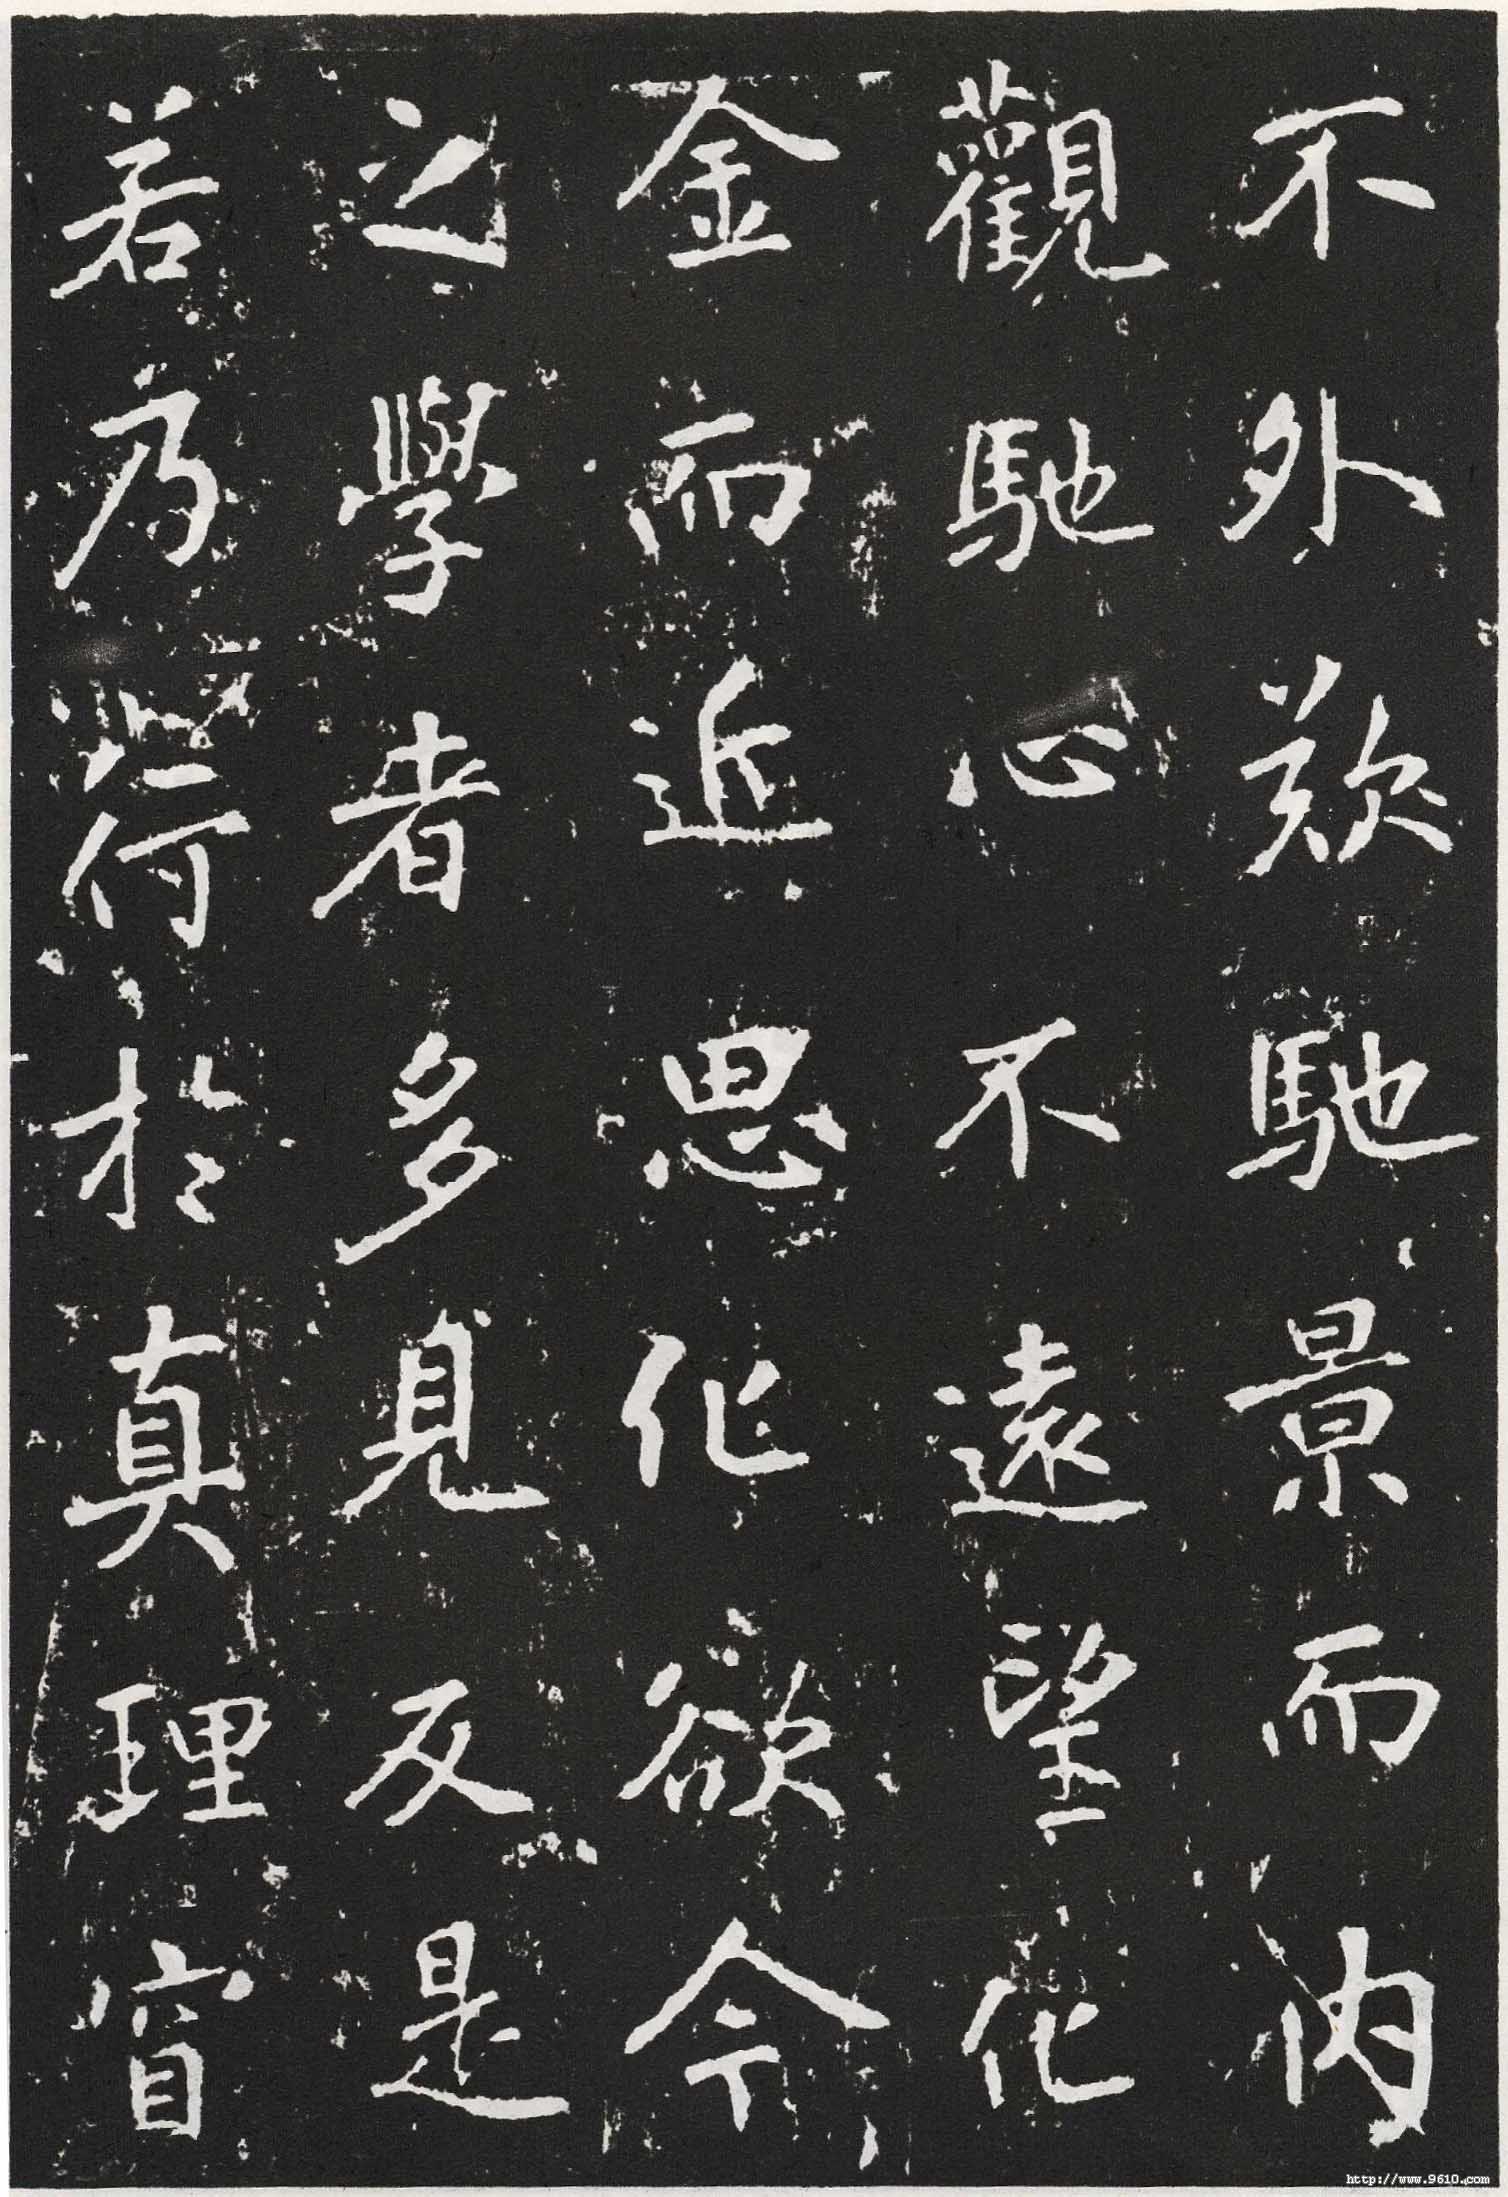 不外欻馳景而内
觀馳心不遠望化
金而近思化欲今
之學者多見反是
若乃符於真理窅
http://www.9610.com